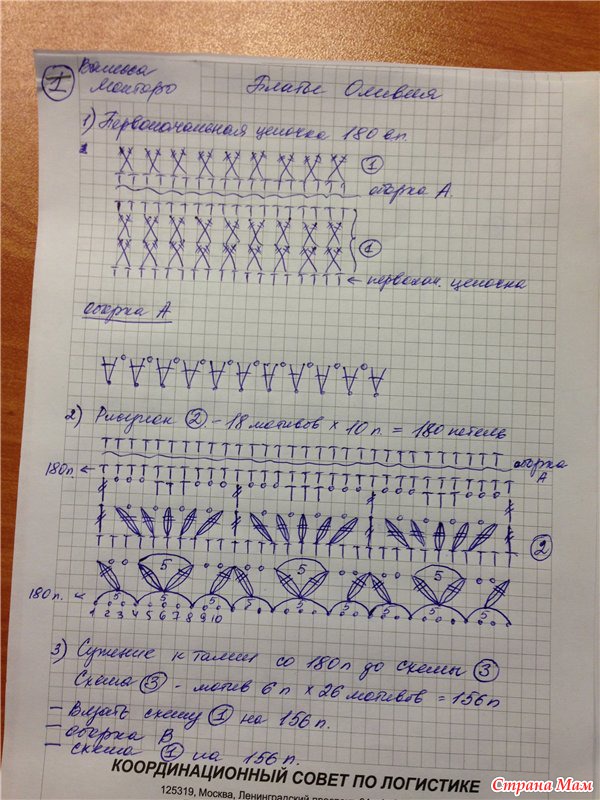 1 Ванесса
Монторо Платье Оливия
1) Первоначальная цепочка 180 вп.
1
оборка А.
1
← первонач. цепочка
оборка А
2) Рисунок 2 - 18 мотивов × 10 п. = 180 петель
оборка
А
180п. ←
2
5 5 5
180п. ← 5 5 5 5 5 5
1 2 3 4 5 6 7 8 9 10
3) Сужение к талии со 180п до схемы 3
Схема 3 - мотив 6п × 26 мотивов = 156п
- Вязать схему 1 на 156п.
- оборка В
- схема 1 на 156п.
КООРДИНАЦИОННЫЙ СОВЕТ ПО ЛОГИСТИКЕ
125319, Москва, Ленинградский
Страна Мам